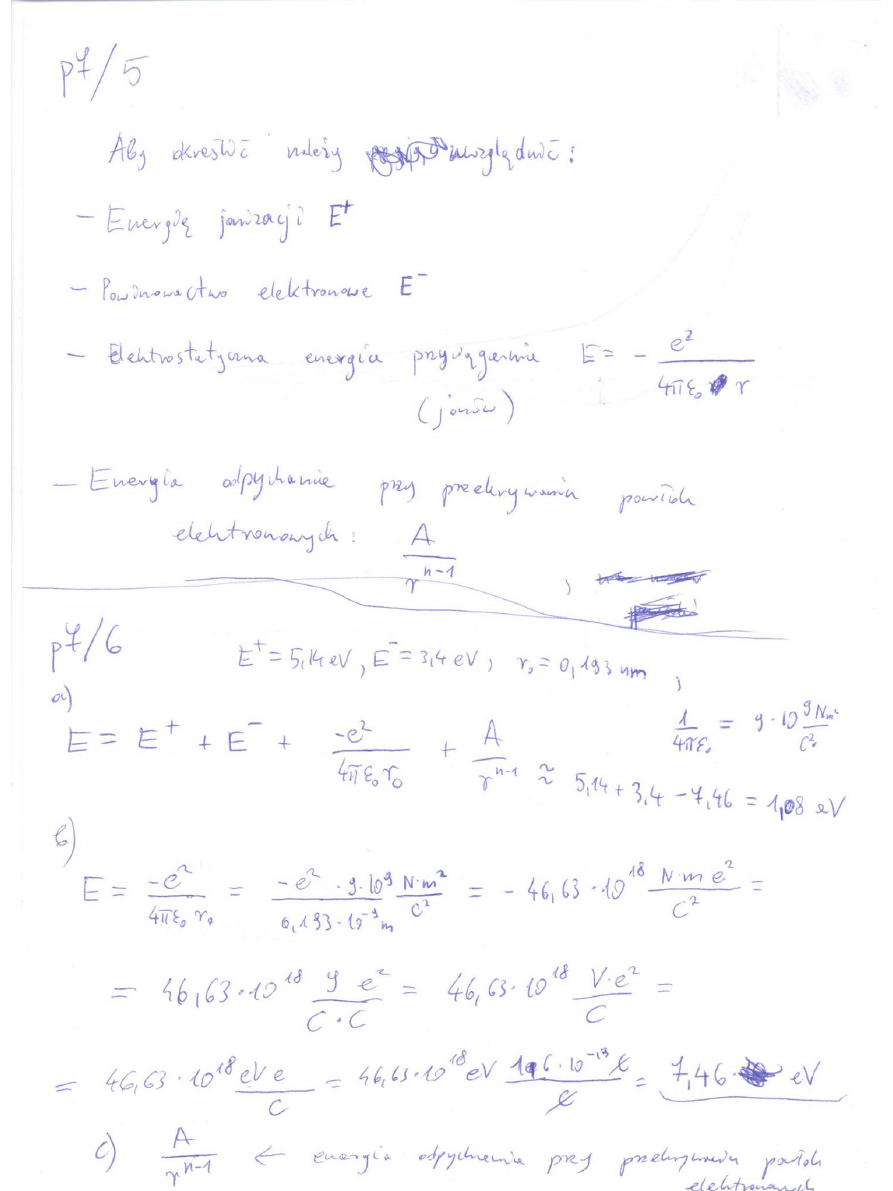 p7/5
Aby określić należy uwzględnić:
- Energię jonizacji E⁺
- Powinowactwo elektronowe E⁻
- Elektrostatyczna energia przyciągania E = - e² / 4πε₀ r
(jonów)
- Energia odpychania przy przekrywaniu powłok
elektronowych: A / rⁿ⁻¹ ,
p7/6 E⁺ = 5,14 eV, E⁻ = 3,4 eV, r₀ = 0,193 nm ;
a) 1 / 4πε₀ = 9·10⁹ Nm² / C²
E = E⁺ + E⁻ + -e² / 4πε₀r₀ + A / rⁿ⁻¹ ≈ 5,14 + 3,4 - 7,46 = 1,08 eV
b)
E = -e² / 4πε₀ r₀ = -e² · 9·10⁹ / 0,193·10⁻⁹ m N·m² / C² = - 46,63·10¹⁸ N·m e² / C² =
= 46,63·10¹⁸ J e² / C·C = 46,63·10¹⁸ V·e² / C =
= 46,63·10¹⁸ eV e / C = 46,63·10¹⁸ eV 1,6·10⁻¹⁹ C / C = 7,46 eV
c) A / rⁿ⁻¹ ← energia odpychania przy przekrywaniu powłok
elektronowych